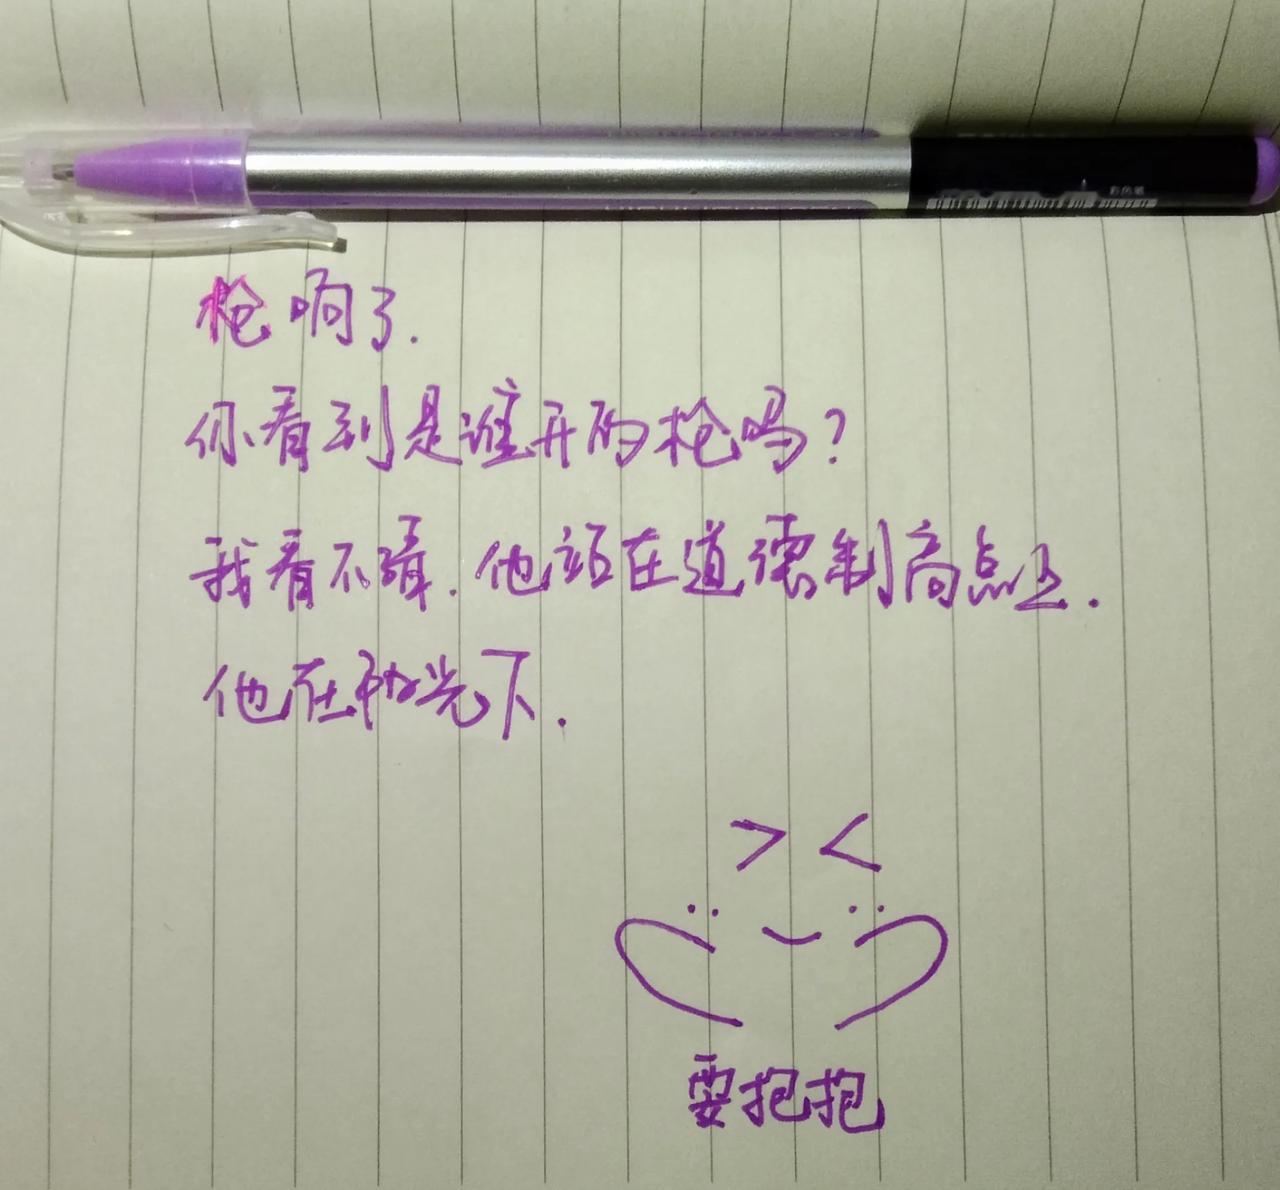 彩色笔
枪响了.
你看到是谁开的枪吗?
我看不清. 他站在道德制高点上.
他在秋光下.
要抱抱